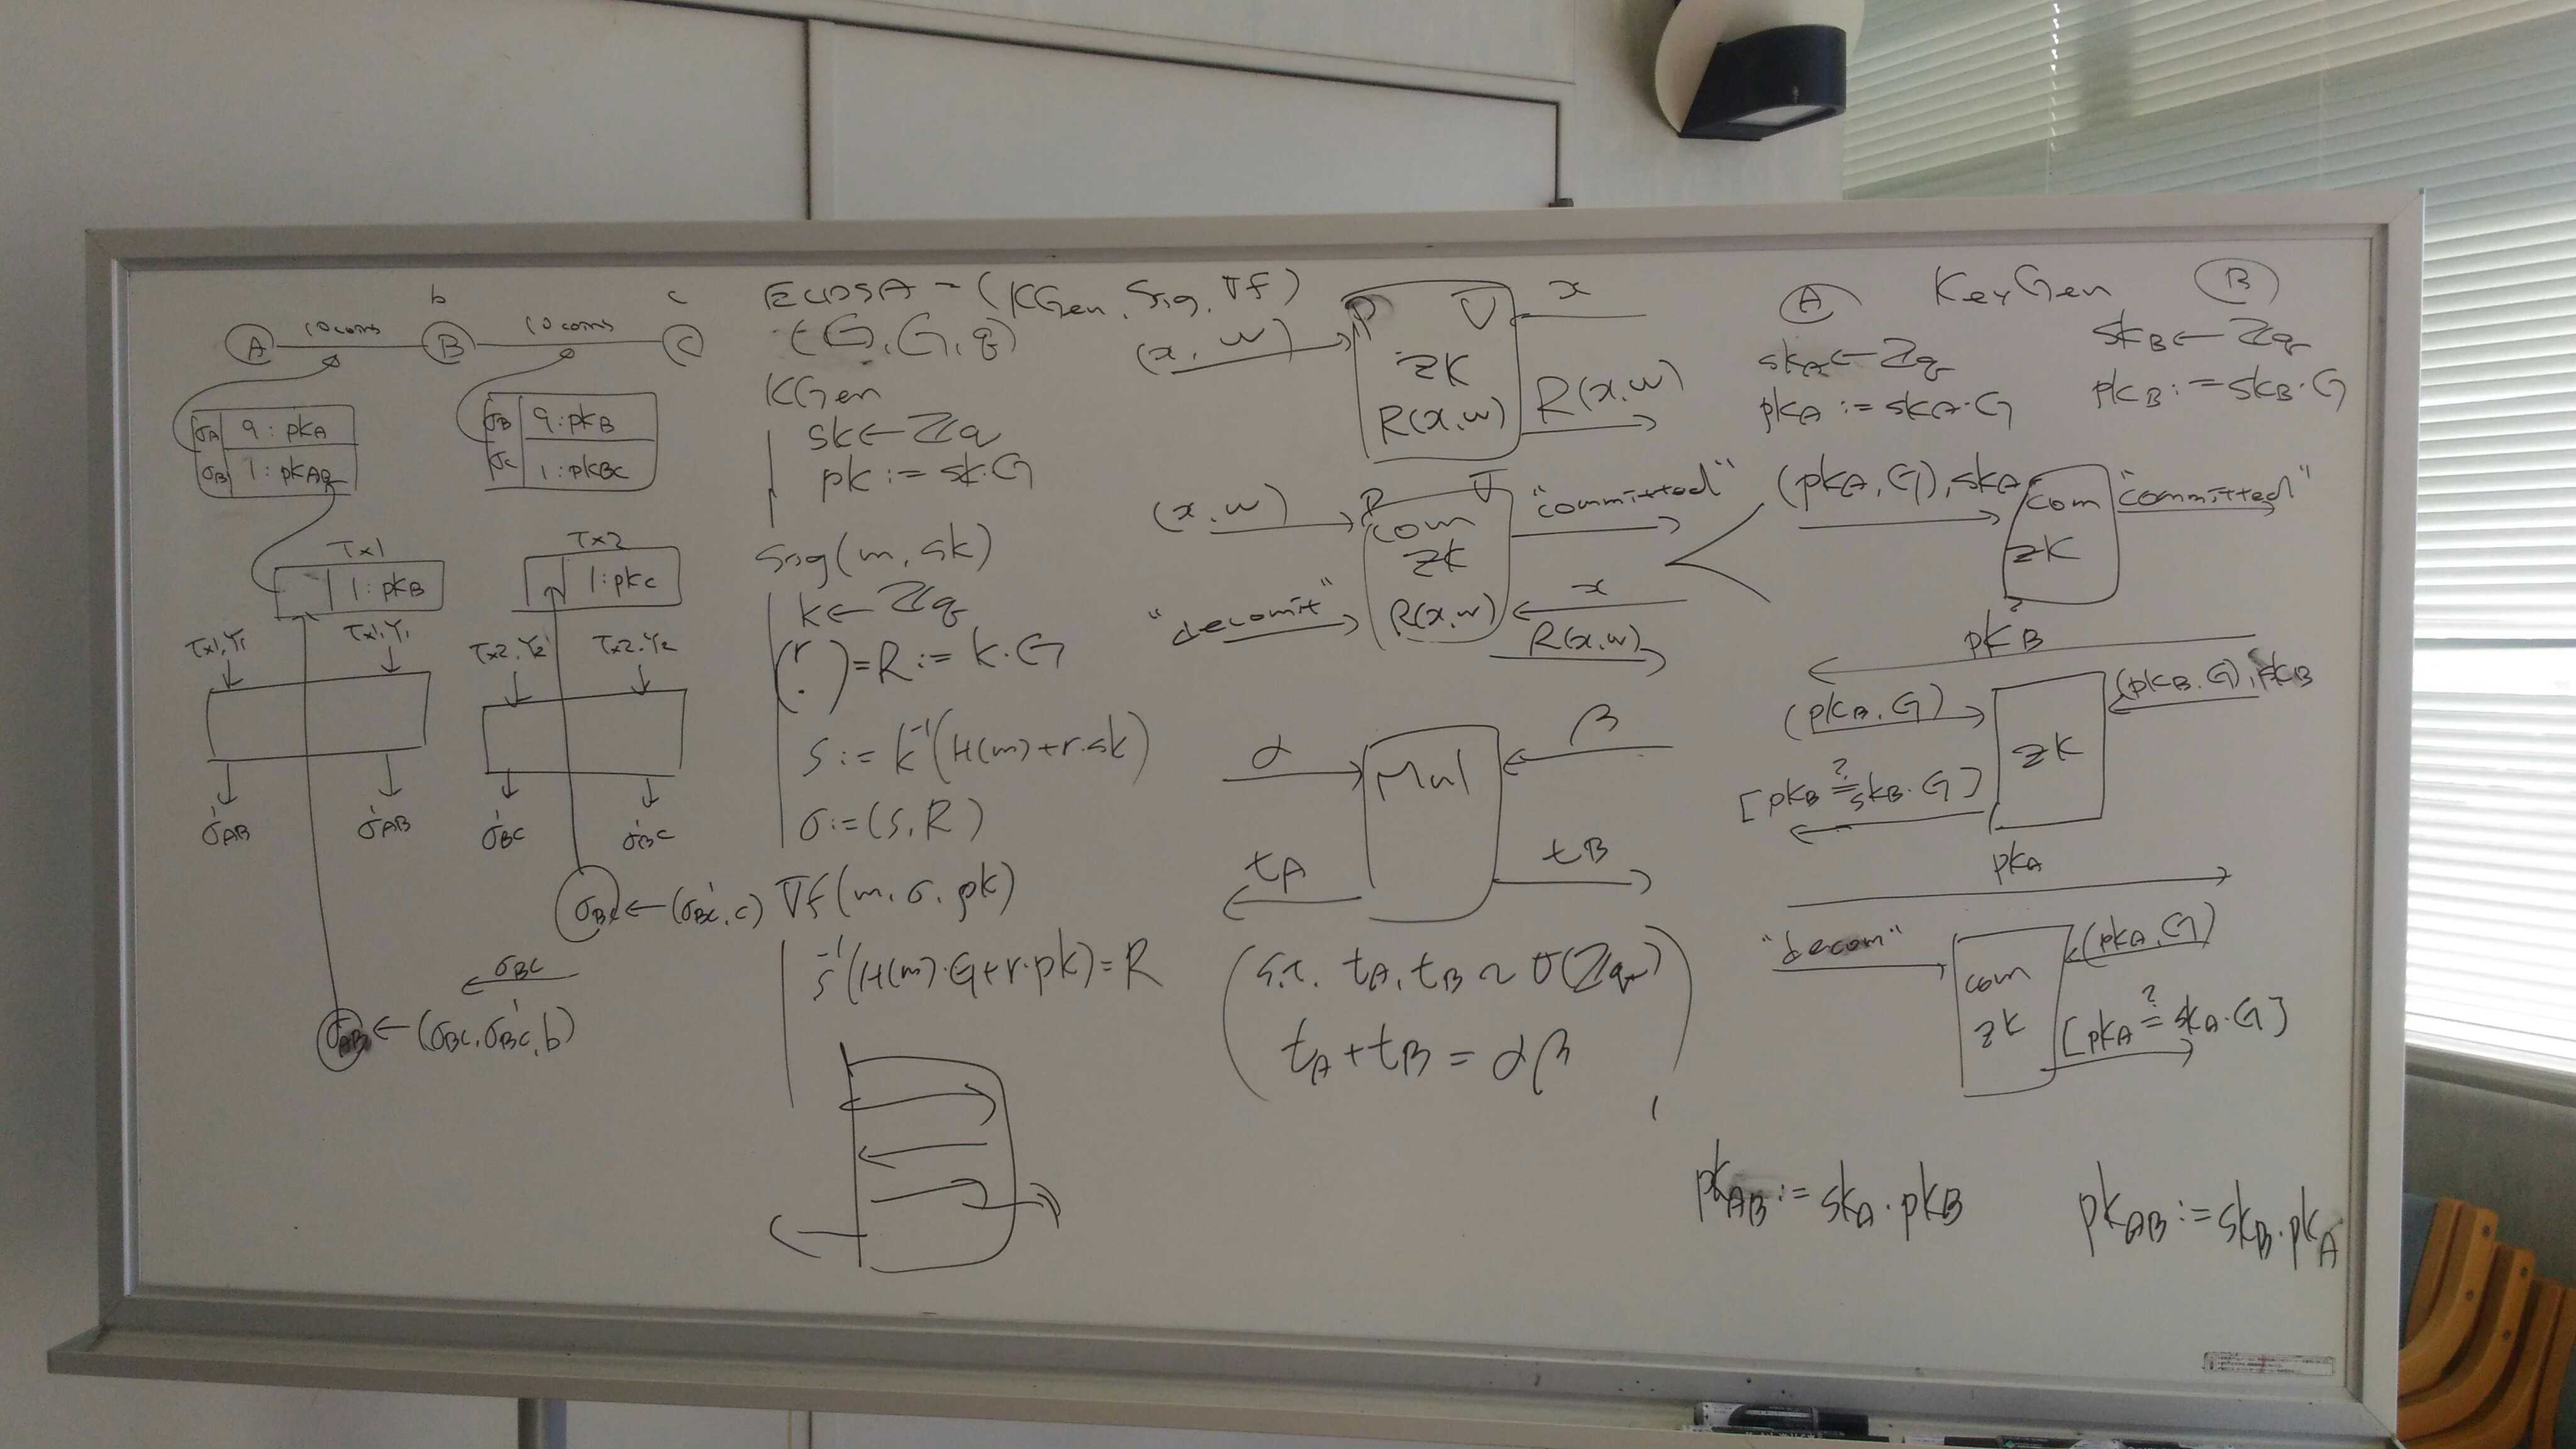 b
c
A
10 coins
B
10 coins
C
σA 9 : pkA
σB 1 : pkAB
σB 9 : pkB
σC 1 : pkBC
Tx1
1 : pkB
Tx2
1 : pkC
Tx1, Y1
Tx1, Y1
Tx2, Y2
Tx2, Y2
σ'AB
σ'AB
σ'BC
σ'BC
σBC ← (σ'BC, c)
σBC
σAB ← (σBC, σ'BC, b)
ECDSA = (KGen, Sig, Vf)
(G, G, q)
KGen
sk ← Zq
pk := sk·G
Sig(m, sk)
k ← Zq
(r, ·) = R := k·G
s := k⁻¹(H(m) + r·sk)
σ := (s, R)
Vf(m, σ, pk)
s⁻¹(H(m)·G + r·pk) = R
P V
x
(x, w)
ZK
R(x, w)
R(x, w)
P V
(x, w)
"committed"
com
ZK
x
"decomit"
R(x, w)
R(x, w)
α
β
Mul
tA
tB
(s.t. tA, tB ~ U(Zq)
tA + tB = αβ)
A KeyGen B
skA ← Zq
skB ← Zq
pkA := skA·G
pkB := skB·G
(pkA, G), skA
com
"committed"
ZK
pkB
(pkB, G)
(pkB, G), skB
ZK
[pkB ?= skB·G]
pkA
"decom"
(pkA, G)
com
ZK
[pkA ?= skA·G]
pkAB := skA·pkB
pkAB := skB·pkA